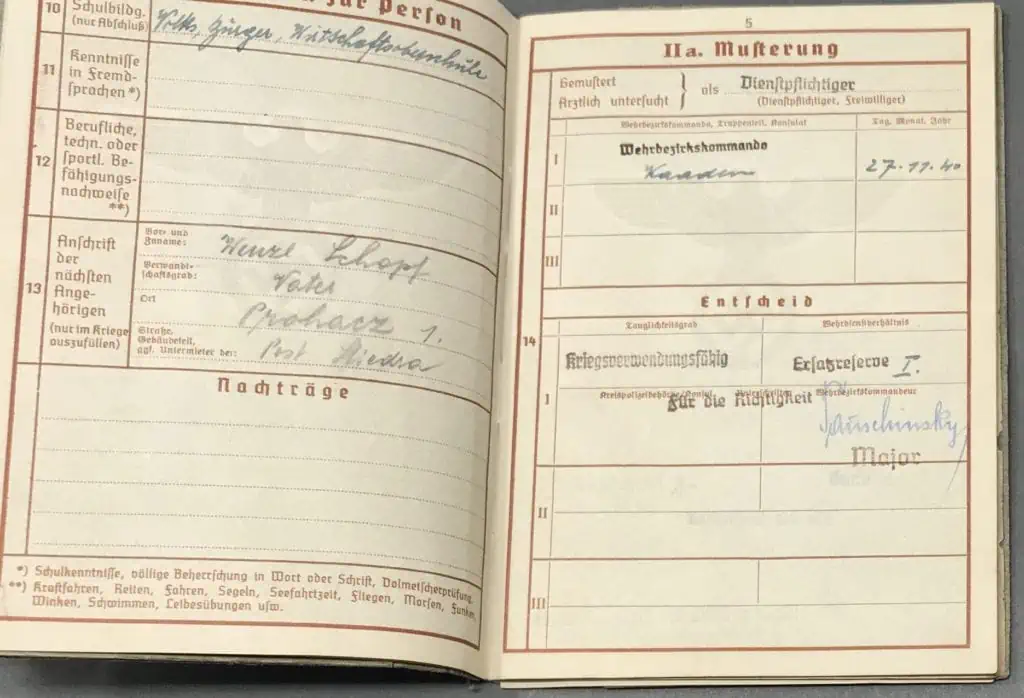 zur Person
10 Schulbildg. (nur Abschluß)
Volks, Bürger, Wirtschaftsoberschule
11 Kenntnisse in Fremd-
sprachen *)
12 Berufliche,
techn. oder
sportl. Be-
fähigungs-
nachweise
**)
13 Anschrift
der
nächsten
Ange-
hörigen
(nur im Kriege
auszufüllen)
Vor- und
Zuname:
Wenzl Schopf
Verwandt-
schaftsgrad:
Vater
Ort
Prohacz 1.
Straße,
Gebäudeteil,
ggf. Untermieter bei:
Post Miedra
Nachträge
*) Schulkenntnisse, völlige Beherrschung in Wort oder Schrift, Dolmetscherprüfung.
**) Kraftfahren, Reiten, Fahren, Segeln, Seefahrtzeit, Fliegen, Morsen, Funken,
Winken, Schwimmen, Leibesübungen usw.
5
IIa. Musterung
Gemustert
Ärztlich untersucht } als Dienstpflichtiger
(Dienstpflichtiger, Freiwilliger)
Wehrbezirkskommando, Truppenteil, Konsulat
Tag, Monat, Jahr
I Wehrbezirkskommando
Kaaden 27.11.40
II
III
Entscheid
14
Tauglichkeitsgrad Wehrdienstverhältnis
Kriegsverwendungsfähig Ersatzreserve I.
I Kreispolizeibehörde/Konsul Unterschriften Wehrbezirkskommandeur
Für die Richtigkeit
Major
II
III